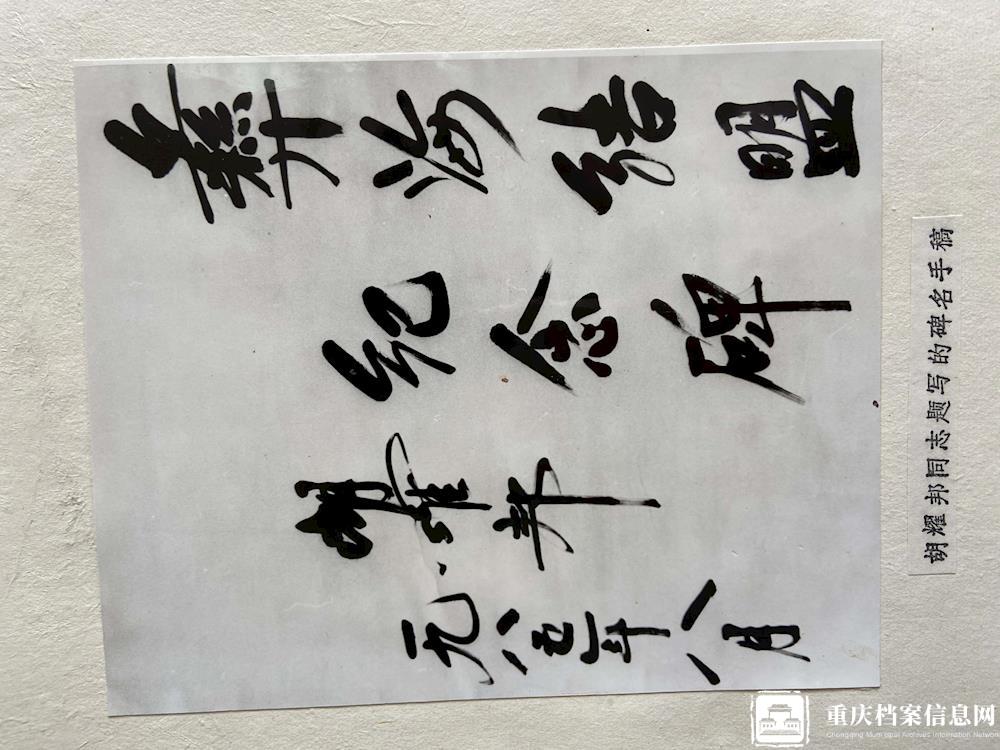 彝海结盟
纪念碑
胡耀邦
一九八五年八月
胡耀邦同志题写的碑名手稿
重庆档案信息网
Chongqing Municipal Archives Information Network